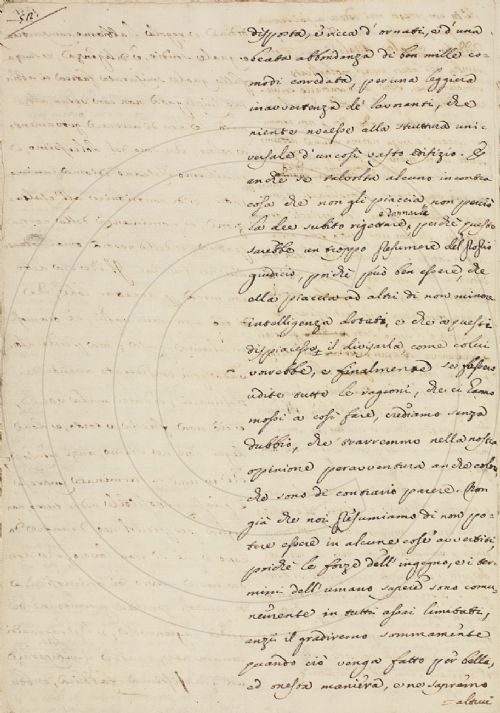 disposta, e ricca d'ornati, e d'una
beata abbondanza di ben mille co-
modi corredata, per una leggiera
inavvertenza de' lavoranti, che
niente nocesse alla struttura uni-
versale d'un così vasto edifizio. E
anche se talvolta alcuno incontra
cosa che non gli piaccia, non perciò
la dee subito rigettare, perchè questo
sarebbe un troppo presumere del proprio
giudicio, poichè può ben essere, che
ella piaccia ad altri di non minore
intelligenza dotati, e che a questi
dispiacesse, il divisarla come colui
vorrebbe, e finalmente se fussero
udite tutte le ragioni, che ci hanno
mossi a così fare, crediamo senza
dubbio, che trarremmo nella nostra
opinione peravventura anche coloro,
che sono di contrario parere. Non
già che noi presumiamo di non po-
tere essere in alcune cose avvertiti,
poichè le forze dell'ingegno, e i ter-
mini dell'umano sapere sono comu-
nemente in tutti assai limitati,
anzi il gradiremo sommamente
quando ciò venga fatto per bella,
ed onesta maniera, e ne sapremo
altrui